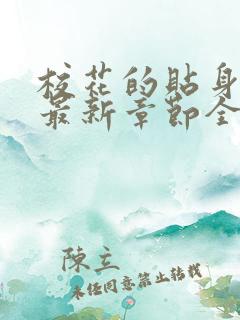 校花的贴身
最新章节全
陳立
未经同意禁止转载